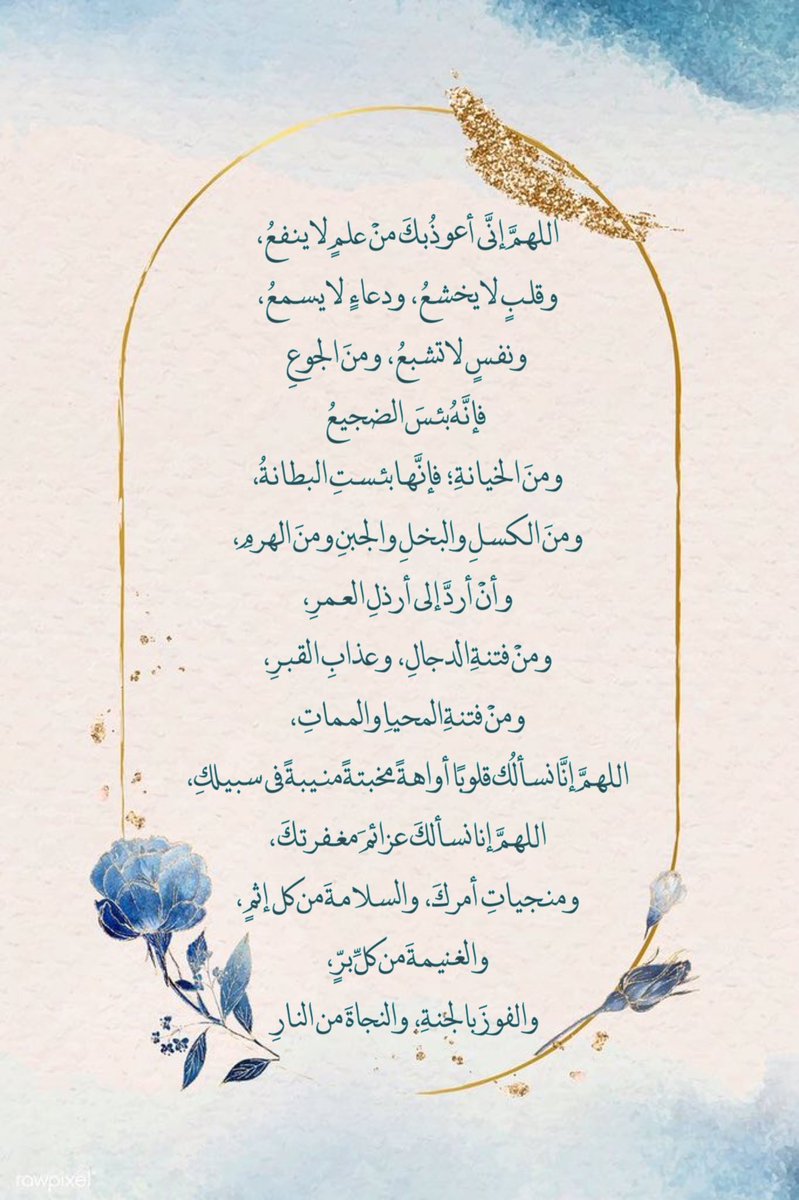 اللهمَّ إنَّى أعوذُ بكَ منْ علمٍ لا ينفعُ،
وقلبٍ لا يخشعُ، ودعاءٍ لا يسمعُ،
ونفسٍ لا تشبعُ، ومنَ الجوعِ
فإنَّهُ بئسَ الضجيعُ
ومنَ الخيانةِ؛ فإنَّها بئستِ البطانةُ،
ومنَ الكسلِ والبخلِ والجبنِ ومنَ الهرمِ،
وأنْ أردَّ إلى أرذلِ العمرِ،
ومنْ فتنةِ الدجالِ، وعذابِ القبرِ،
ومنْ فتنةِ المحياِ والمماتِ،
اللهمَّ إنَّا نسألُك قلوبًا أواهةً مخبتةً منيبةً فى سبيلكِ،
اللهمَّ إنا نسألكَ عزائمَ مغفرتكَ،
ومنجياتِ أمركَ، والسلامةَ من كل إثمٍ،
والغنيمةَ من كلِّ برٍّ،
والفوزَ بالجنةِ، والنجاةَ من النارِ
rawpixel